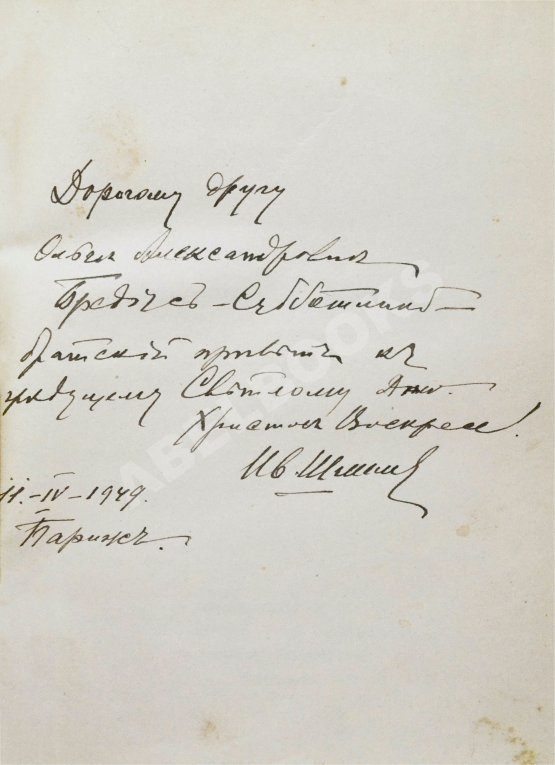 Дорогому другу
Ольге Александровне
Бредiусъ-Субботиной –
братскiй привѣтъ къ
грядущему Свѣтлому Дню.
Христосъ Воскресе!
Ив. Шмелев
11.-IV-1949.
Парижъ.
ABELBOOKS